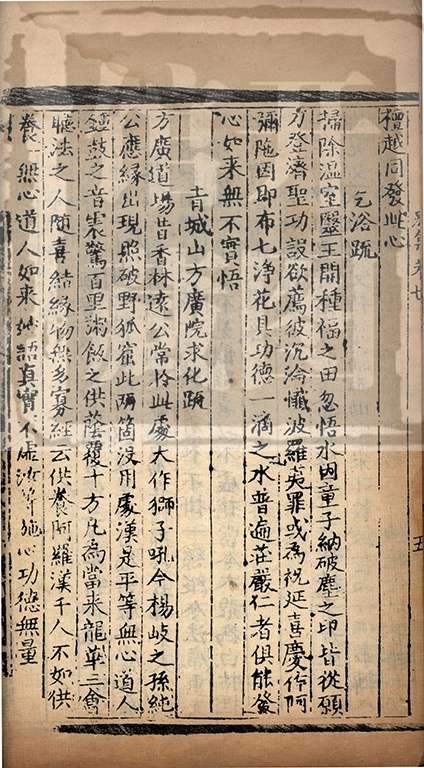 檀越同發此心
乞浴疏
掃除溫室醫王開種福之田忽悟水因童子納破塵之印皆從願
力登濟聖功設欲薦彼沉淪懺波羅夷罪或為祝延喜慶作阿
彌陁因即布七淨花具功德一滴之水普遍莊嚴仁者俱能發
心如来無不實悟
青城山方廣院求化疏
方廣道場昔香林遠公常於此處大作獅子吼今楊岐之孫純
公應緣出現照破野狐窟此兩箇沒用處漢是平等無心道人
鍾鼓之音震驚百里粥飯之供蔭覆十方凡為當来龍華三會
聽法之人随喜結緣物無多寡經云供養阿羅漢千人不如供
養一無心道人如来妙語真實不虛汝等施心功德無量
五